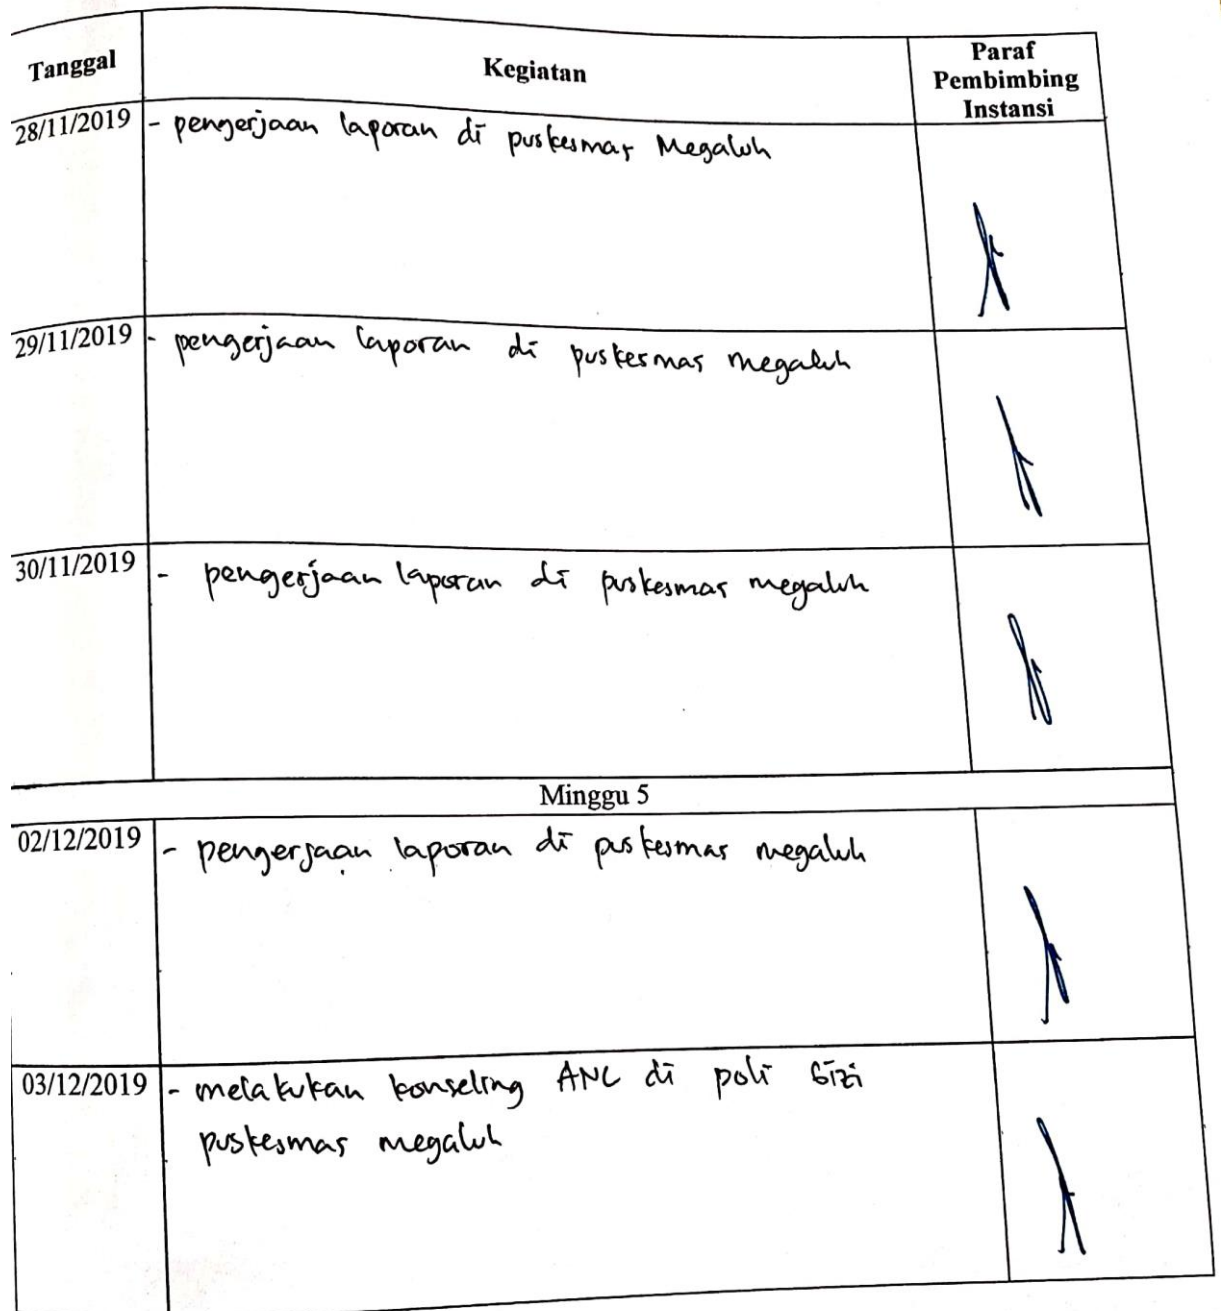 Tanggal
Kegiatan
Paraf
Pembimbing
Instansi
28/11/2019
- pengerjaan laporan di puskesmas Megaluh
29/11/2019
- pengerjaan laporan di puskesmas megaluh
30/11/2019
- pengerjaan laporan di puskesmas megaluh
Minggu 5
02/12/2019
- pengerjaan laporan di puskesmas megaluh
03/12/2019
- melakukan konseling ANC di poli Gizi
puskesmas megaluh